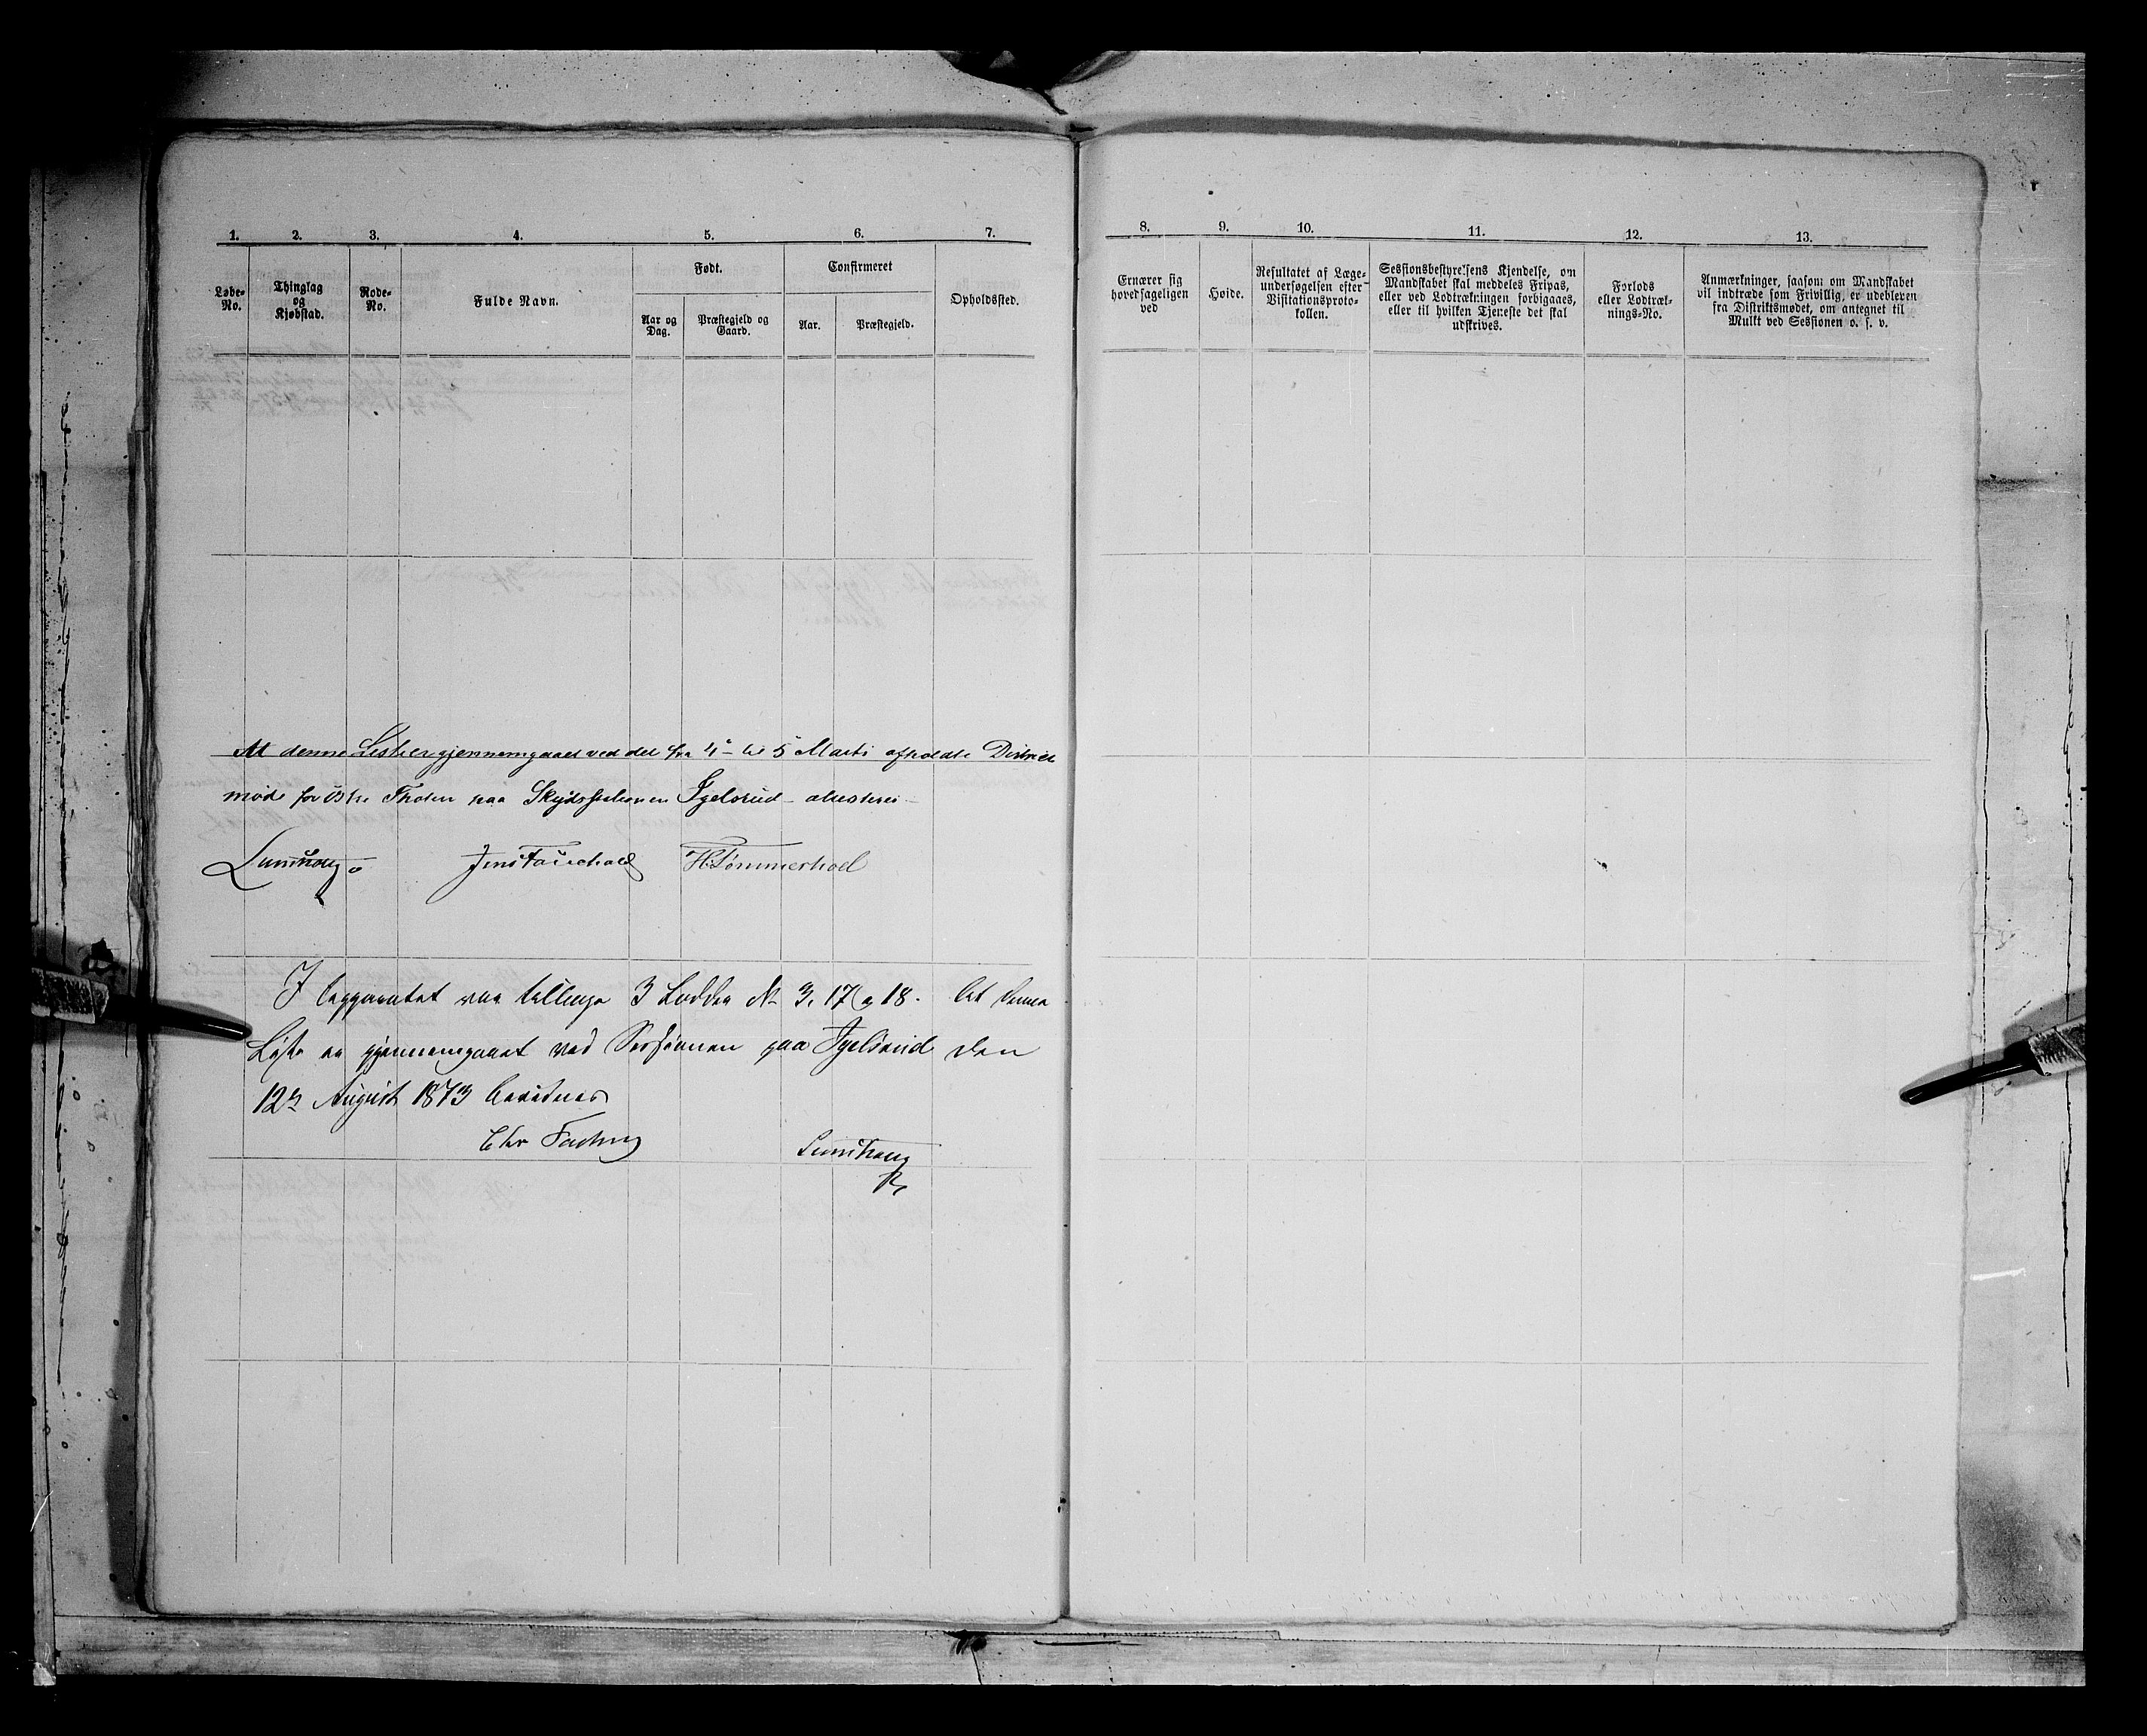 1. 2. 3. 4. 5. 6. 7.
Løbe-No.
Thinglag og Kjøbstad.
Rode-No.
Fulde Navn.
Født.
Aar og Dag.
Præstegjeld og Gaard.
Confirmeret
Aar.
Præstegjeld.
Opholdssted.
8. 9. 10. 11. 12. 13.
Ernærer sig hovedsageligen ved
Høide.
Resultatet af Læge-undersøgelsen efter Visitationsproto-kollen.
Sessionsbestyrelsens Kjendelse, om Mandskabet skal meddeles Fripas, eller ved Lodtrækningen forbigaaes, eller til hvilken Tjeneste det skal udskrives.
Forlods eller Lodtræk-nings-No.
Anmærkninger, saasom om Mandskabet vil indtræde som Frivillig, er udebleven fra Distriktsmødet, om antegnet til Mulkt ved Sessionen o. s. v.
At denne Liste er gjennemgaaet ved det fra 4de til 5 Marts afholdte Districts
møde for Østre Thoten paa Skydsstationen Igelsrud attesteres
Lumholtz
Jens Fauchald H. Tømmerhoel
3 Lodder No 3, 17 og 18. At denne
Liste er gjennemgaaet ved Sessionen paa Igelsrud den
12te August 1873 bevidnes
Chr